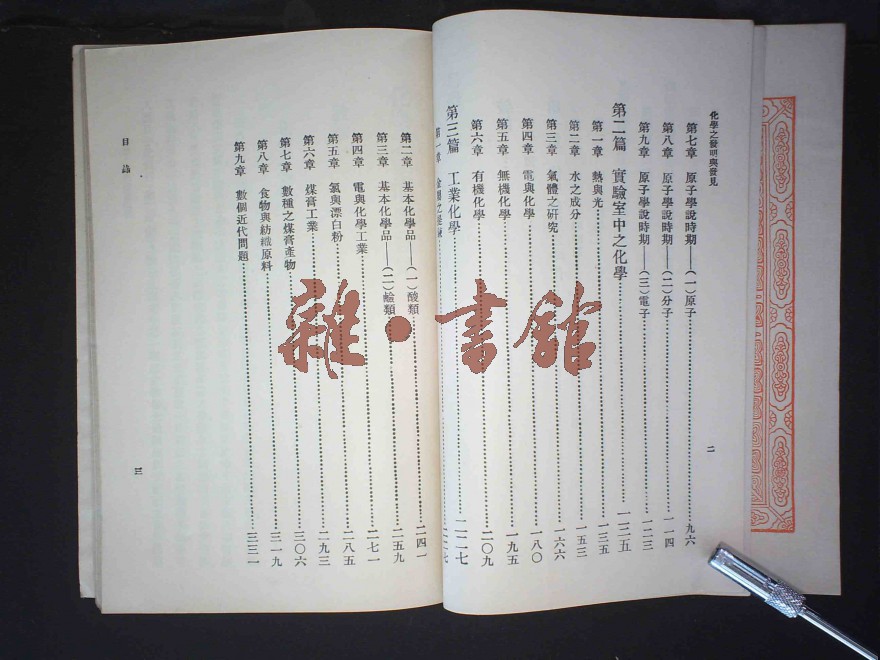 化學之發明與發見
第七章 原子學說時期——(一)原子……九六
第八章 原子學說時期——(二)分子……一一四
第九章 原子學說時期——(三)電子……一二三
第二篇 實驗室中之化學……一二五
第一章 熱與光……一三五
第二章 水之成分……一五三
第三章 氣體之研究……一六六
第四章 電與化學……一八〇
第五章 無機化學……一九五
第六章 有機化學……二〇九
第三篇 工業化學……二二七
第一章……二二七
二
第二章 基本化學品——(一)酸類……二四一
第三章 基本化學品——(二)鹼類……二五九
第四章 電與化學工業……二七一
第五章 氯與漂白粉……二八五
第六章 煤膏工業……二九三
第七章 數種之煤膏產物……三〇六
第八章 食物與紡織原料……三一九
第九章 數個近代問題……三三一
目
三
雜·書館